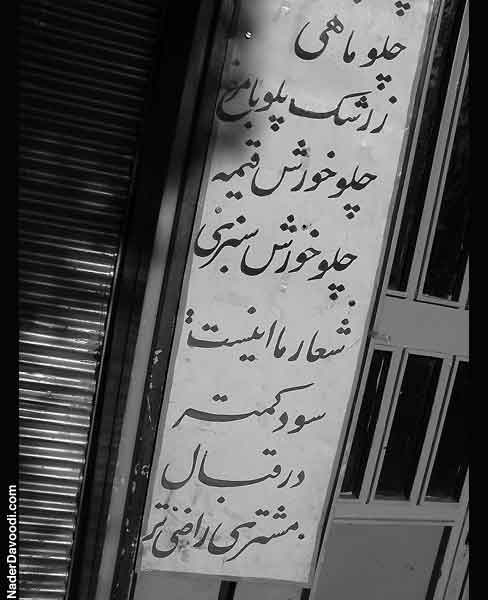 چلو ماهی
زرشک پلو با مرغ
چلو خورش قیمه
چلو خورش سبزی
شعار ما اینست:
سود کمتر
در قبال
مشتری راضی تر
NaderDavoodi.com